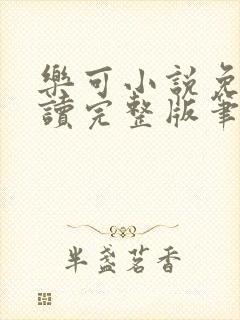 樂可小說免
讀完整版筆
半盞茗香